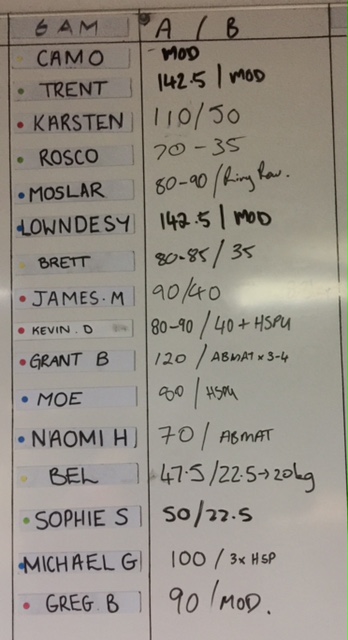 6AM A / B
CAMO MOD
TRENT 142.5 / MOD
KARSTEN 110/50
ROSCO 70-35
MOSLAR 80-90 / Ring Row.
LOWNDESY 142.5 / MOD
BRETT 80-85 / 35
JAMES.M 90/40
KEVIN.D 80-90 / 40 + HSPU
GRANT B 120 / ABMAT x 3-4
MOE 80 / HSPU
NAOMI H 70 / ABMAT
BEL 47.5/22.5→20kg
SOPHIE S 50/22.5
MICHAEL G 100 / 3x HSP
GREG.B 90 / MOD.